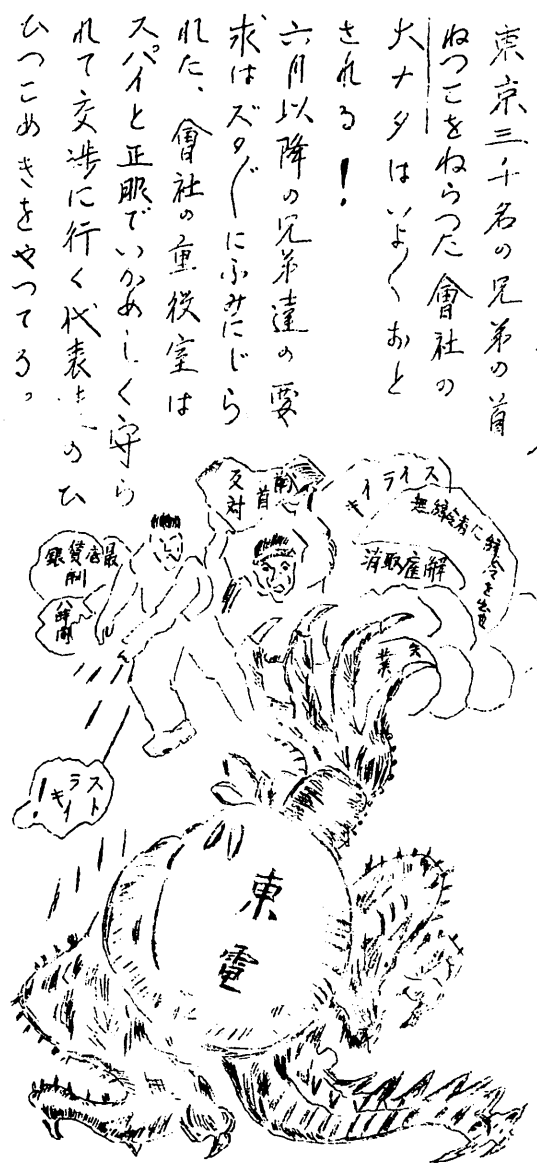 東京三千名の兄弟の首
ねつこをねらつた會社の
大ナタはいよ〱おと
される!
六月以降の兄弟達の要
求はズタ〲にふみにじら
れた、會社の重役室は
スパイと正服でいかめしく守ら
れて交渉に行く代表のひ
ひつこめきをやつてる。
馘首
反対
ストライキ
解雇取消
失業
最低賃銀
制
八時間
ストライキ!
東電